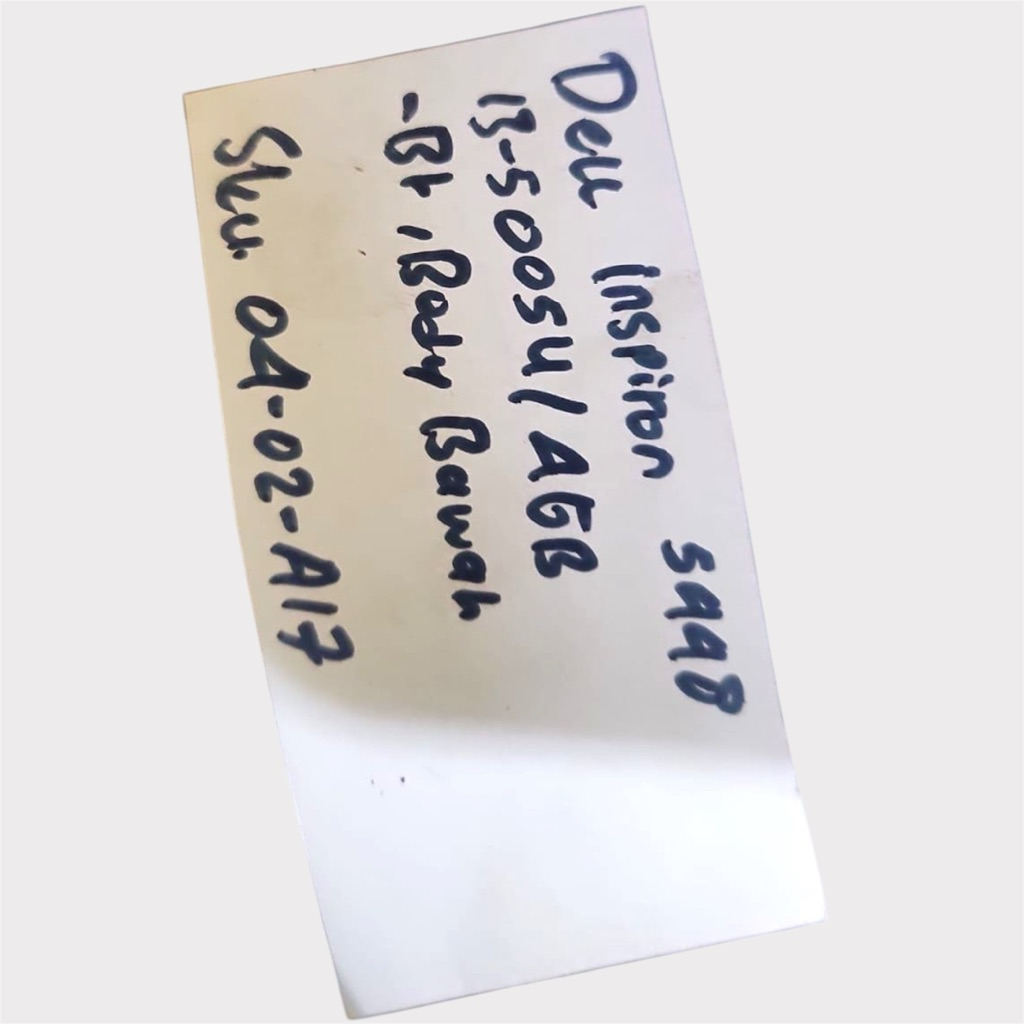 Dell inspiron 5448
i3-5005U/4GB
-Bt, Body Bawah
Sku. 04-02-A17